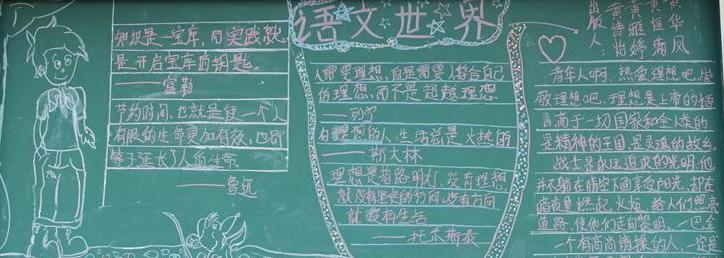 语文世界
知识是一宝库,而实践就
是开启宝库的钥匙。
——富勒
节约时间,也就是使一个人
有限的生命更加有效,也即
等于延长了人的生命
——鲁迅
人需要理想,但是需要人符合自己
的理想,而不是超越理想
——列宁
有理想的人,生活总是火热的
——斯大林
理想是指路明灯,没有理想
就没有坚定的方向,没有方向
就没有生活
——托尔斯泰
出版人
青年人啊,热爱理想吧,崇
敬理想吧。理想是上帝的语
言高于一切国家和全人类的
是精神的王国是灵魂的故乡。
战士是永远追求的光明他
并不躺在晴空下面享受阳光,却在
暗夜里燃起火炬,给人们照亮
道路,使他们走向黎明。—巴金
一个有高尚情操的人,一定是